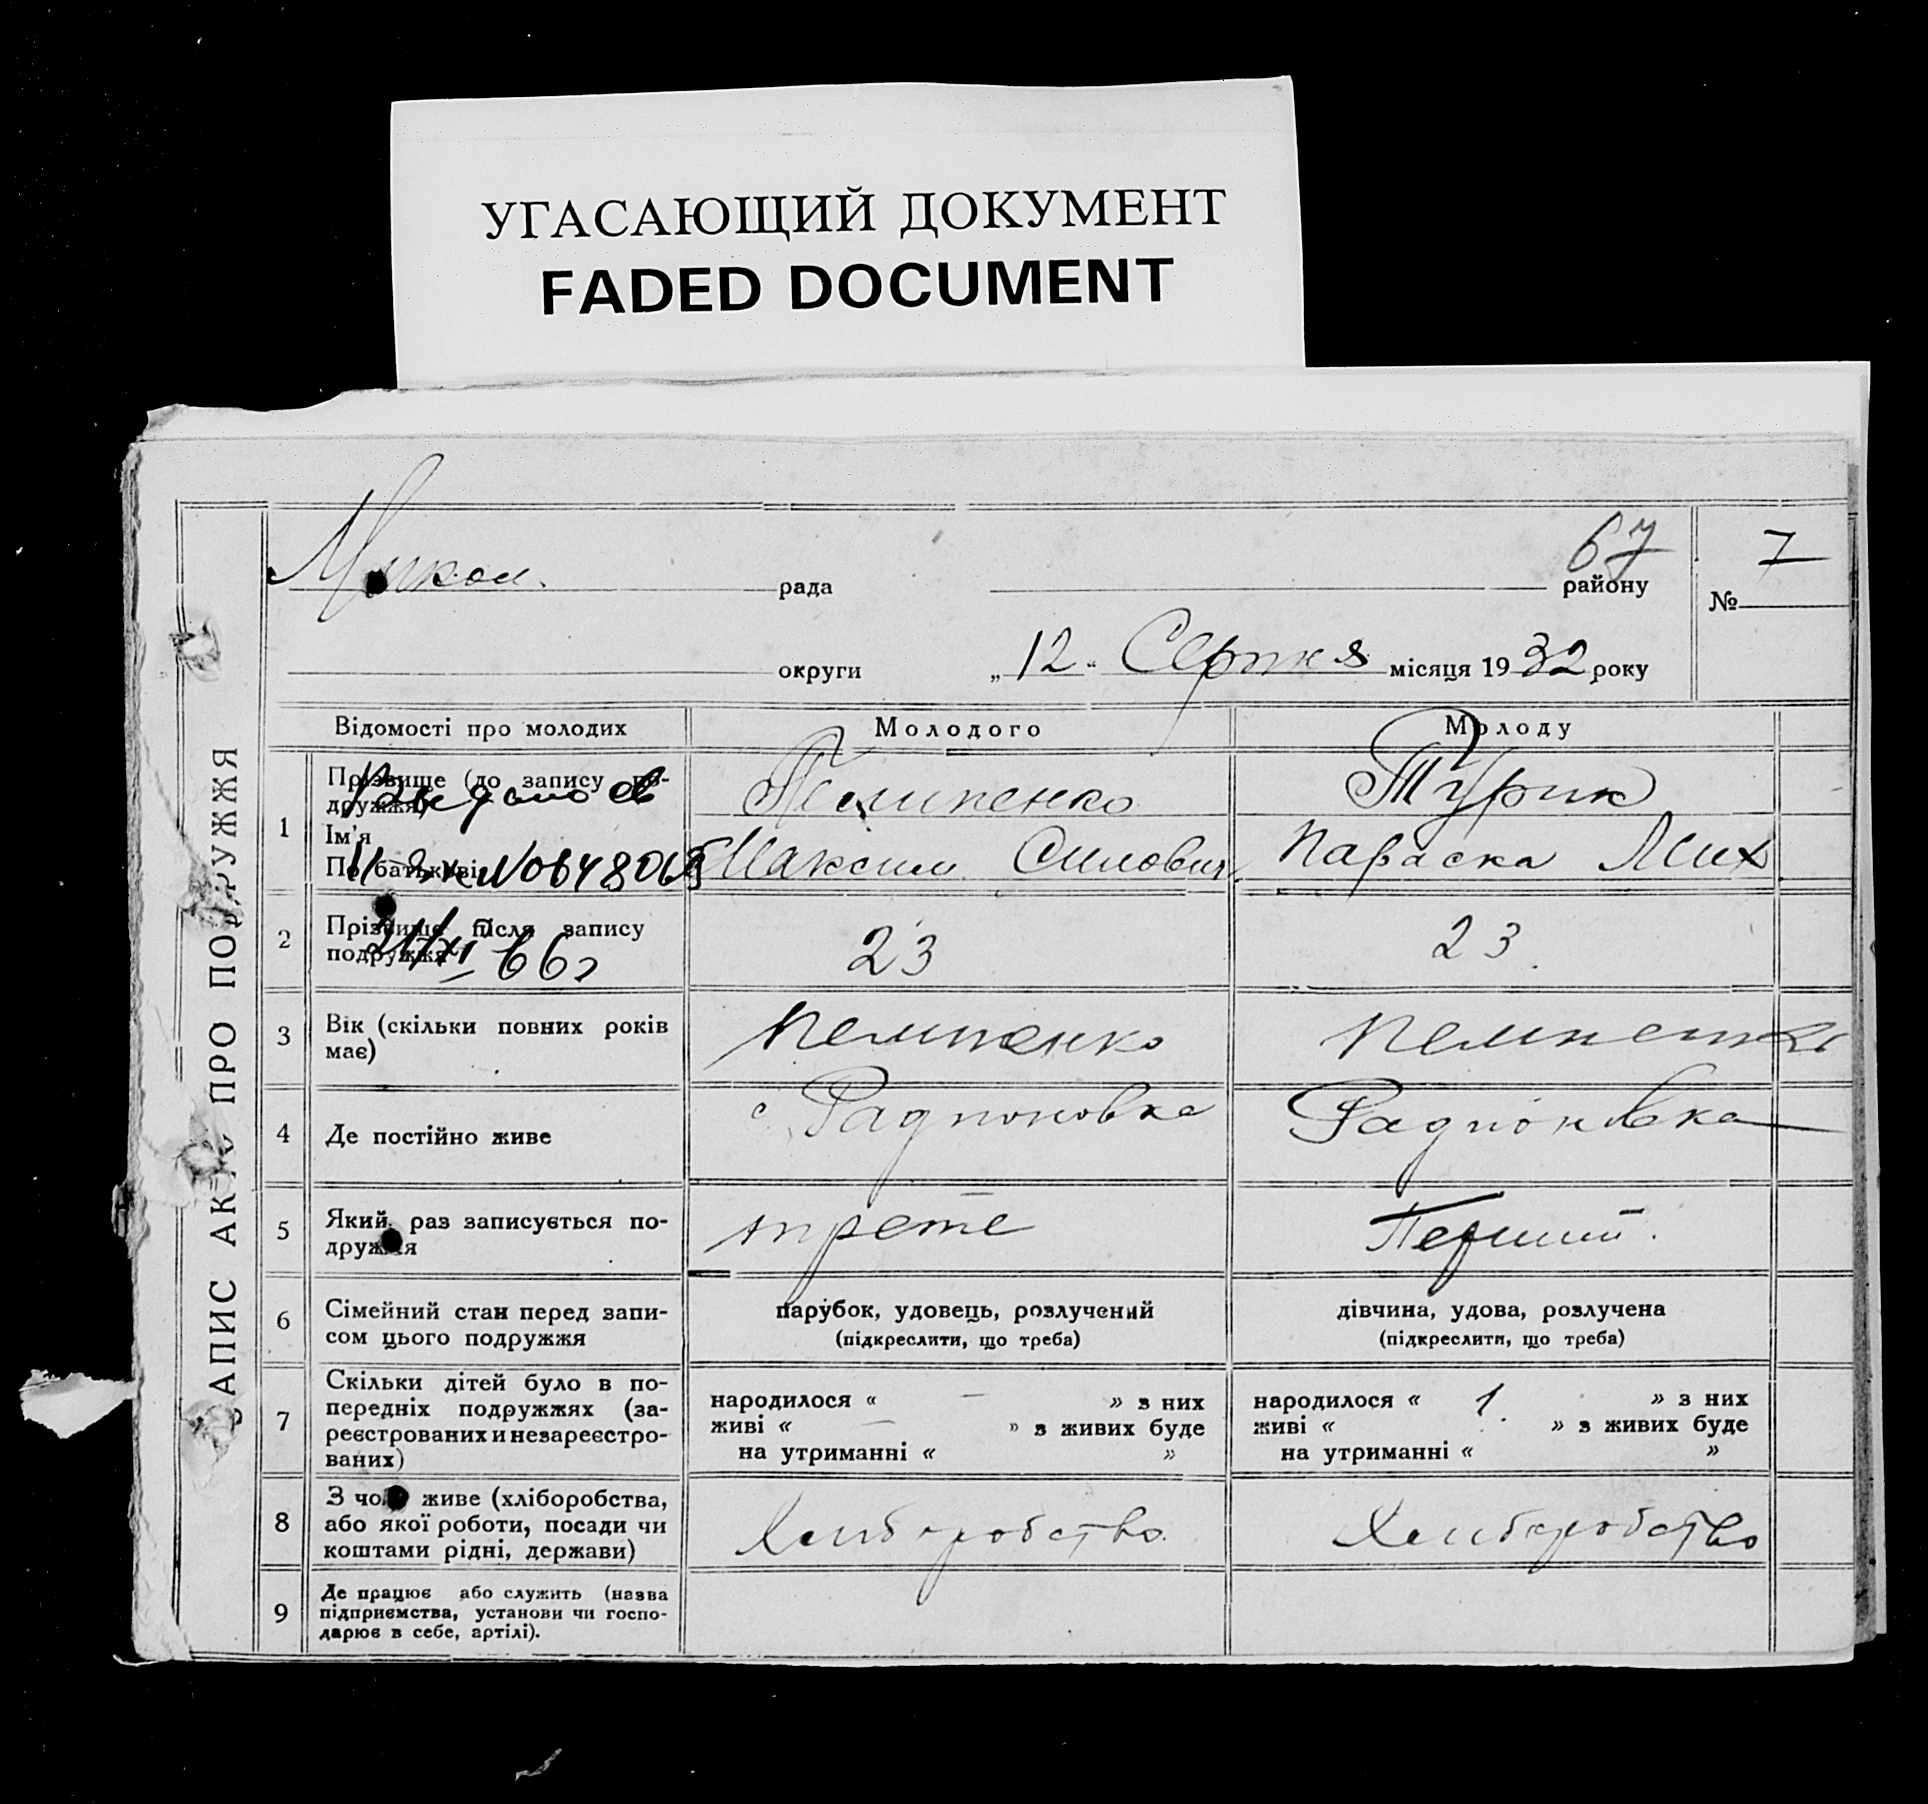 УГАСАЮЩИЙ ДОКУМЕНТ
FADED DOCUMENT
АПИС АКТ ПРО ПОДРУЖЖЯ
Микол. рада
67 району
№ 7
округи
„12“ Серпня місяця 1932 року
Відомості про молодих
Молодого
Молоду
1
Прізвище (до запису по-
дружжя)
Ім'я
По батькові
Темненко
Максим Силович
Турик
Параска Мих
2
Прізвище після запису
подружжя
66г
23
23
3
Вік (скільки повних років
має)
4
Де постійно живе
с Радионовка
Радионовка
5
Який раз записується по-
дружжя
трете
Перший.
6
Сімейний стан перед запи-
сом цього подружжя
парубок, удовець, розлучений
(підкреслити, що треба)
дівчина, удова, розлучена
(підкреслити, що треба)
7
Скільки дітей було в по-
передніх подружжях (за-
реєстрованих и незареєстро-
ваних)
народилося « — » з них
живі « — » з живих буде
на утриманні « »
народилося « 1. » з них
живі « » з живих буде
на утриманні « »
8
З чого живе (хліборобства,
або якої роботи, посади чи
коштами рідні, держави)
Хлиборобство.
Хлиборобство
9
Де працює або служить (назва
підприємства, установи чи госпо-
дарює в себе, артілі).